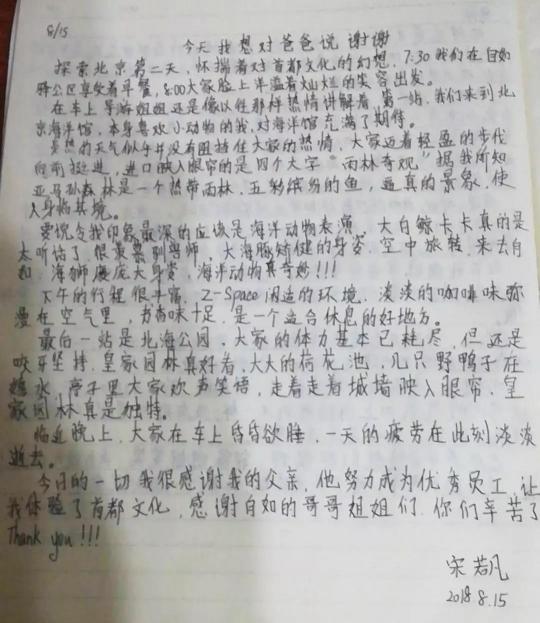 8/15
今天我想对爸爸说 谢谢
探索北京第二天，怀揣着对首都文化的幻想，7:30我们在自如
驿公区享受着早餐，8:00大家脸上洋溢着灿烂的笑容出发。
在车上导游姐姐还是像以往那样热情讲解着，第一站，我们来到北
京海洋馆，本身喜欢小动物的我，对海洋馆充满了期待。
炎热的天气似乎并没有阻挡住大家的热情，大家迈着轻盈的步伐
向前挺进，进口映入眼帘的是四个大字“雨林奇观”据我所知
亚马孙森林是一个热带雨林，五彩缤纷的鱼，逼真的景象，使
人身临其境。
要说令我印象最深的应该是海洋动物表演，大白鲸卡卡真的是
太听话了，很亲昵训导师，大海豚矫健的身姿，空中旋转，来去自
如，海狮庞大身姿，海洋动物真奇妙!!!
下午的行程很丰富，Z-Space 闲适的环境，淡淡的咖啡味弥
漫在空气里，书香味十足，是一个适合休息的好地方。
最后一站是北海公园，大家的体力基本已耗尽，但还是
咬牙坚持，皇家园林真好看，大大的荷花池，几只野鸭子在
水，亭子里大家欢声笑语，走着走着城墙映入眼帘，皇
家园林真是独特。
临近晚上，大家在车上昏昏欲睡，一天的疲劳在此刻淡淡
逝去。
今日的一切我很感谢我的父亲，他努力成为优秀员工，让
我体验了首都文化，感谢自如的哥哥姐姐们，你们辛苦了
Thank you!!!
宋若凡
2018.8.15